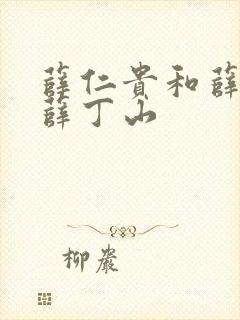 薛仁貴和薛
薛丁山
柳嚴